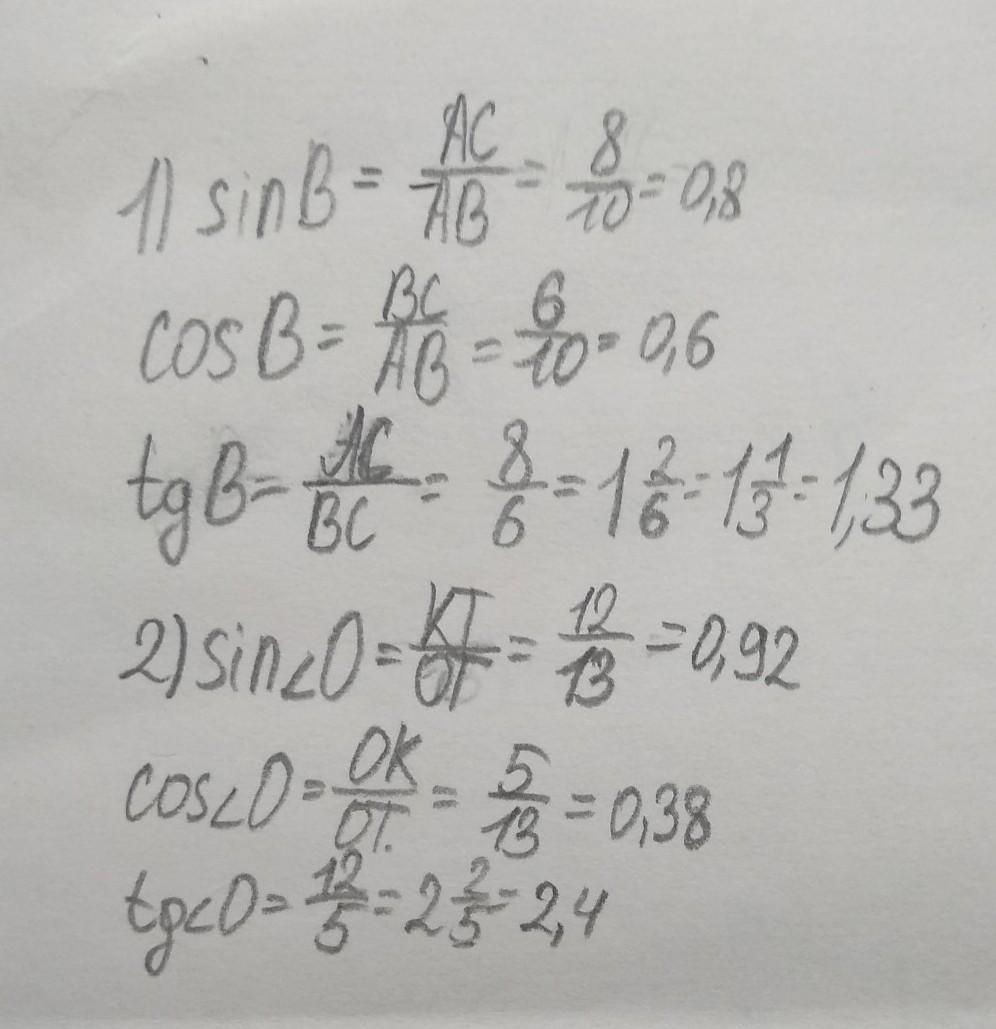 1) sin B = AC/AB = 8/10 = 0,8
cos B = BC/AB = 6/10 = 0,6
tg B = AC/BC = 8/6 = 1 2/6 = 1 1/3 = 1,33
2) sin ∠O = KT/OT = 12/13 = 0,92
cos ∠O = OK/OT = 5/13 = 0,38
tg ∠O = 12/5 = 2 2/5 = 2,4